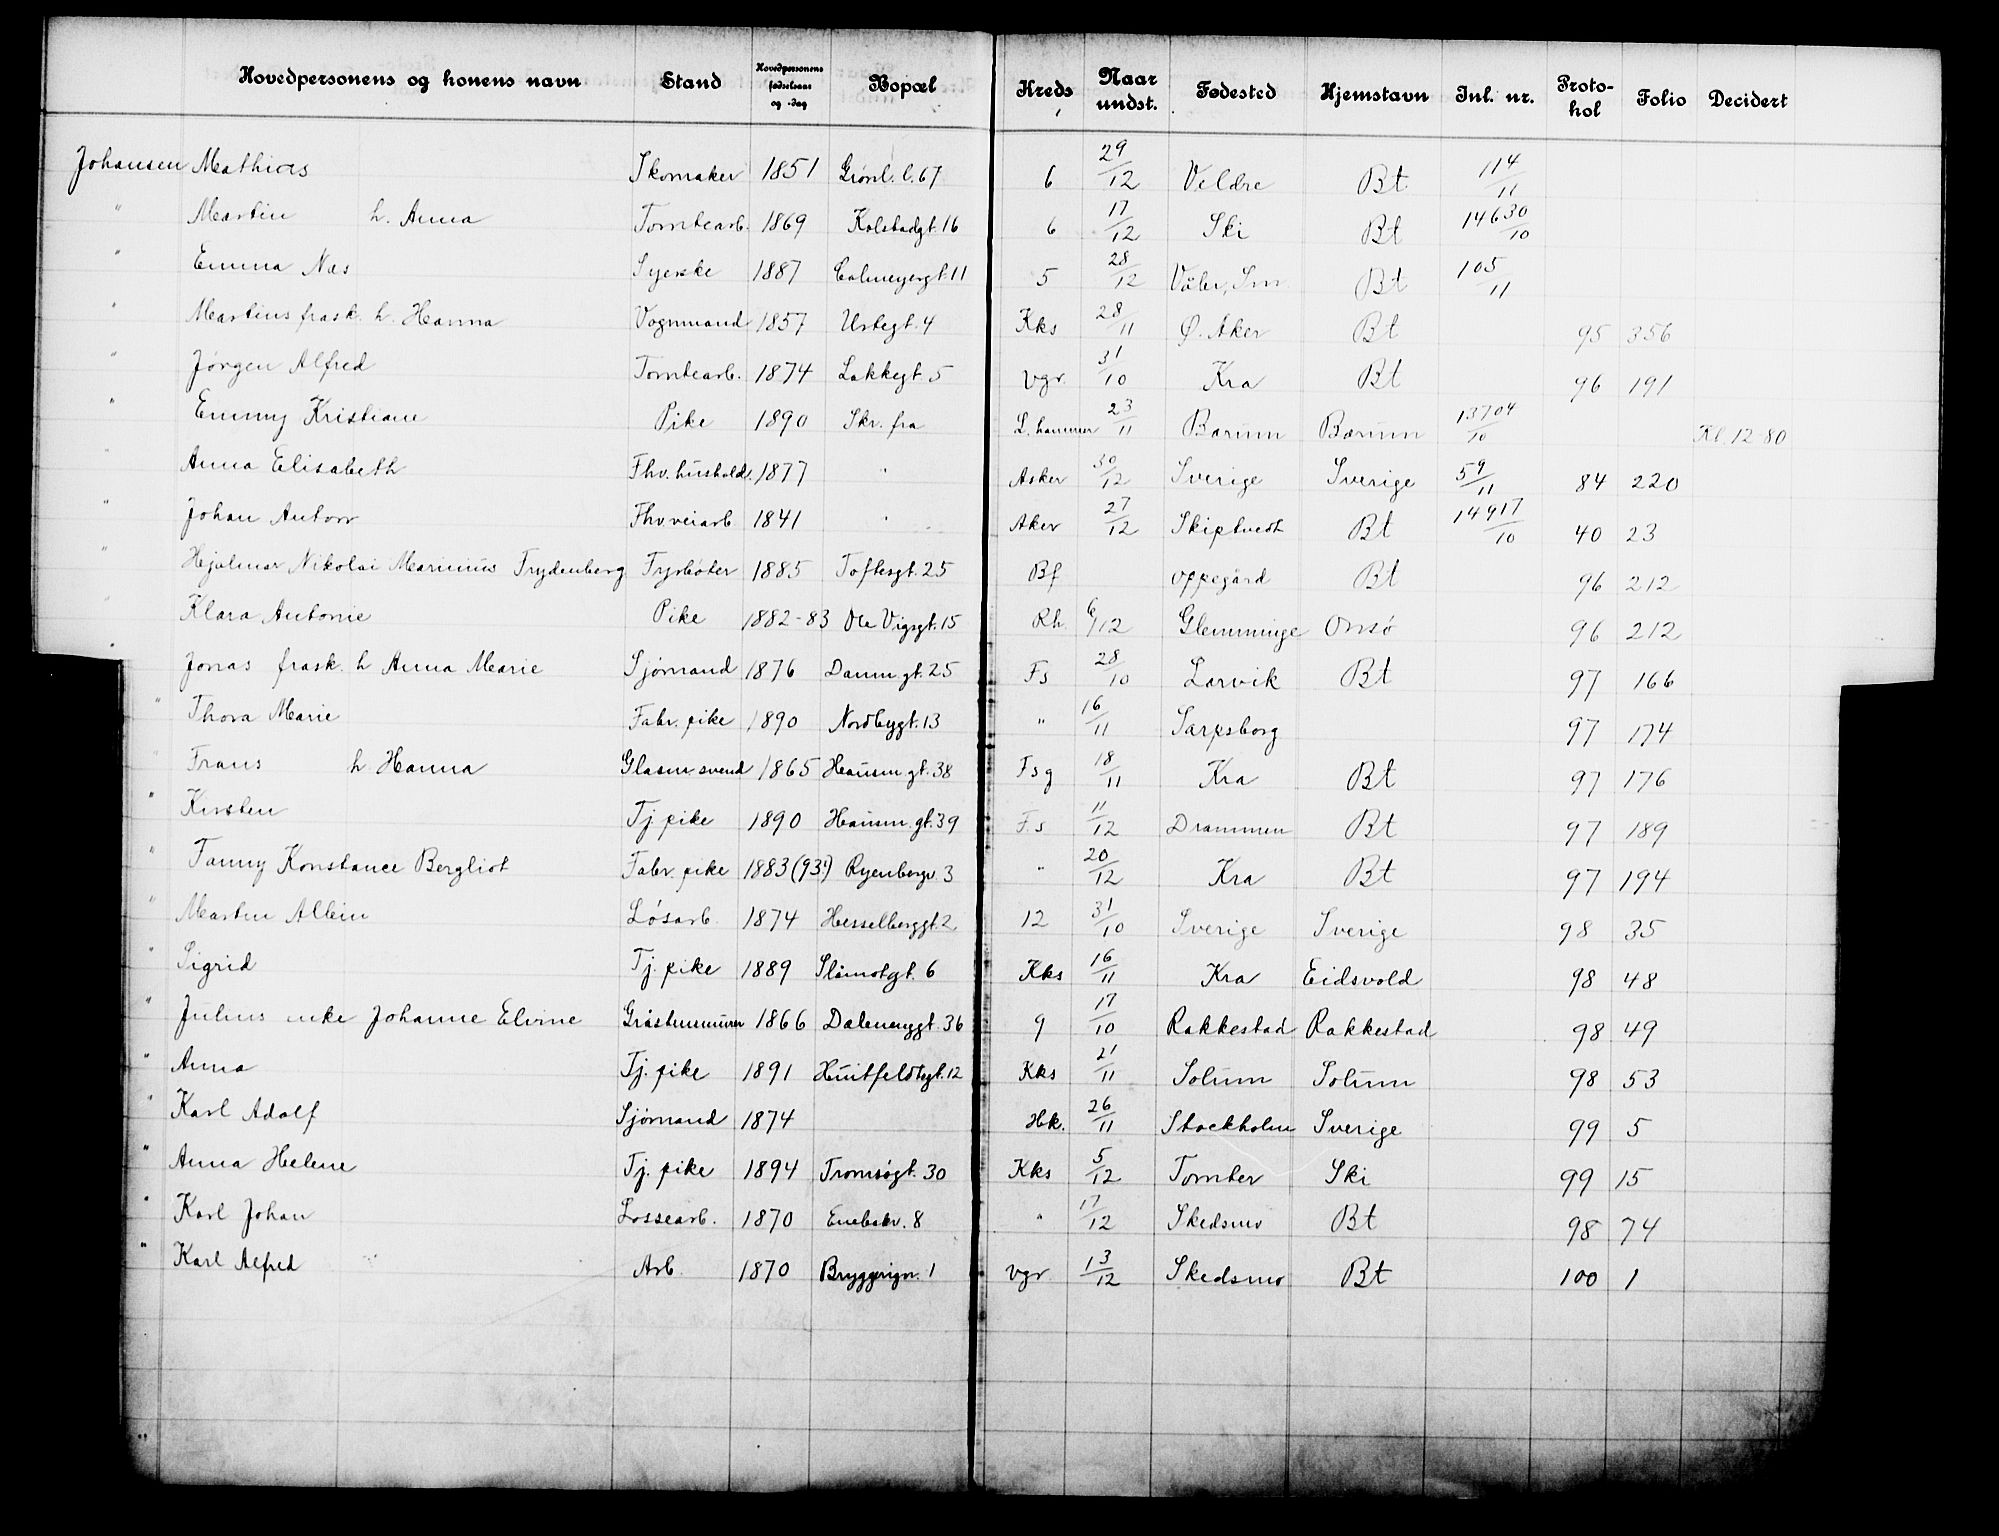 Hovedpersonens og konens navn Stand Hovedpersonens fødselsaar og -dag Bopæl Kreds Naar undst. Fødested Hjemstavn Inl. nr. Protokol Folio Decidert
Johansen Mathias Skomaker 1851 Grønl. l. 67 6 29/12 Veldre Bt. 114/11
" Martin h. Anna Tomtearb. 1869 Kolstadgt. 16 6 17/12 Ski Bt 14630/10
" Emma Næs Syerske 1887 Calmeyergt. 11 5 28/12 Våler, Sm. Bt 105/11
" Martinus frask. h. Hanna Vognmand 1857 Urtegt. 4 Kks 28/11 Ø. Aker Bt 95 356
" Jørgen Alfred Tomtearb. 1874 Lakkegt. 5 Vgr. 31/10 Kra Bt 96 191
" Emmy Kristiane Pike 1890 Skr. fra L. hammer 23/11 Bærum Bærum 13704/10 Kl. 12-80
" Anna Elisabeth Fhv. hushold. 1877 " Asker 30/12 Sverige Sverige 59/11 84 220
" Johan Anton Fhv veiarb 1841 " Aker 27/12 Skiptvedt Bt 14917/10 40 23
" Hjalmar Nikolai Marinius Frydenberg Fyrbøter 1885 Toftesgt. 25 Bf Oppegård Bt 96 212
" Klara Antonie Pike 1882-83 Ole Vigsgt. 15 Rh. 6/12 Glemminge Onsø 96 212
" Jonas frask. h Anna Marie Sjømand 1876 Danm. gt. 25 Fs 28/10 Larvik Bt 97 166
" Thora Marie Fabr. pike 1890 Nordbygt. 13 " 16/11 Sarpsborg 97 174
" Frans h Hanna Glasm. svend 1865 Hausm. gt. 38 Fsg 18/11 Kra Bt 97 176
" Kirsten Tj. pike 1890 Hausm. gt. 39 F.s 11/12 Drammen Bt 97 189
" Fanny Konstance Bergliot Fabr. pike 1883 (93?) Ryenbergv. 3 " 20/12 Kra Bt 97 194
" Martin Albin Løsarb. 1874 Hesselberggt. 2 12 31/10 Sverige Sverige 98 35
" Sigrid Tj. pike 1889 Slåmotgt. 6 Kks 16/11 Kra Eidsvold 98 48
" Julius enke Johanne Elvine Gråstensmurer 1866 Dælenenggt. 36 9 17/10 Rakkestad Rakkestad 98 49
" Anna Tj. pike 1891 Huitfeldtsgt. 12 Kks 21/11 Solum Solum 98 53
" Karl Adolf Sjømand 1874 Hk. 26/11 Stockholm Sverige 99 5
" Anna Helene Tj. pike 1894 Tromsøgt. 30 Kks 5/12 Tomter Ski 99 15
" Karl Johan Lossearb. 1870 Enebakv. 8 " 17/12 Skedsmo Bt 98 74
" Karl Alfred Arb. 1870 Bryggerigv. 1 Vgr. 13/12 Skedsmo Bt 100 1
"